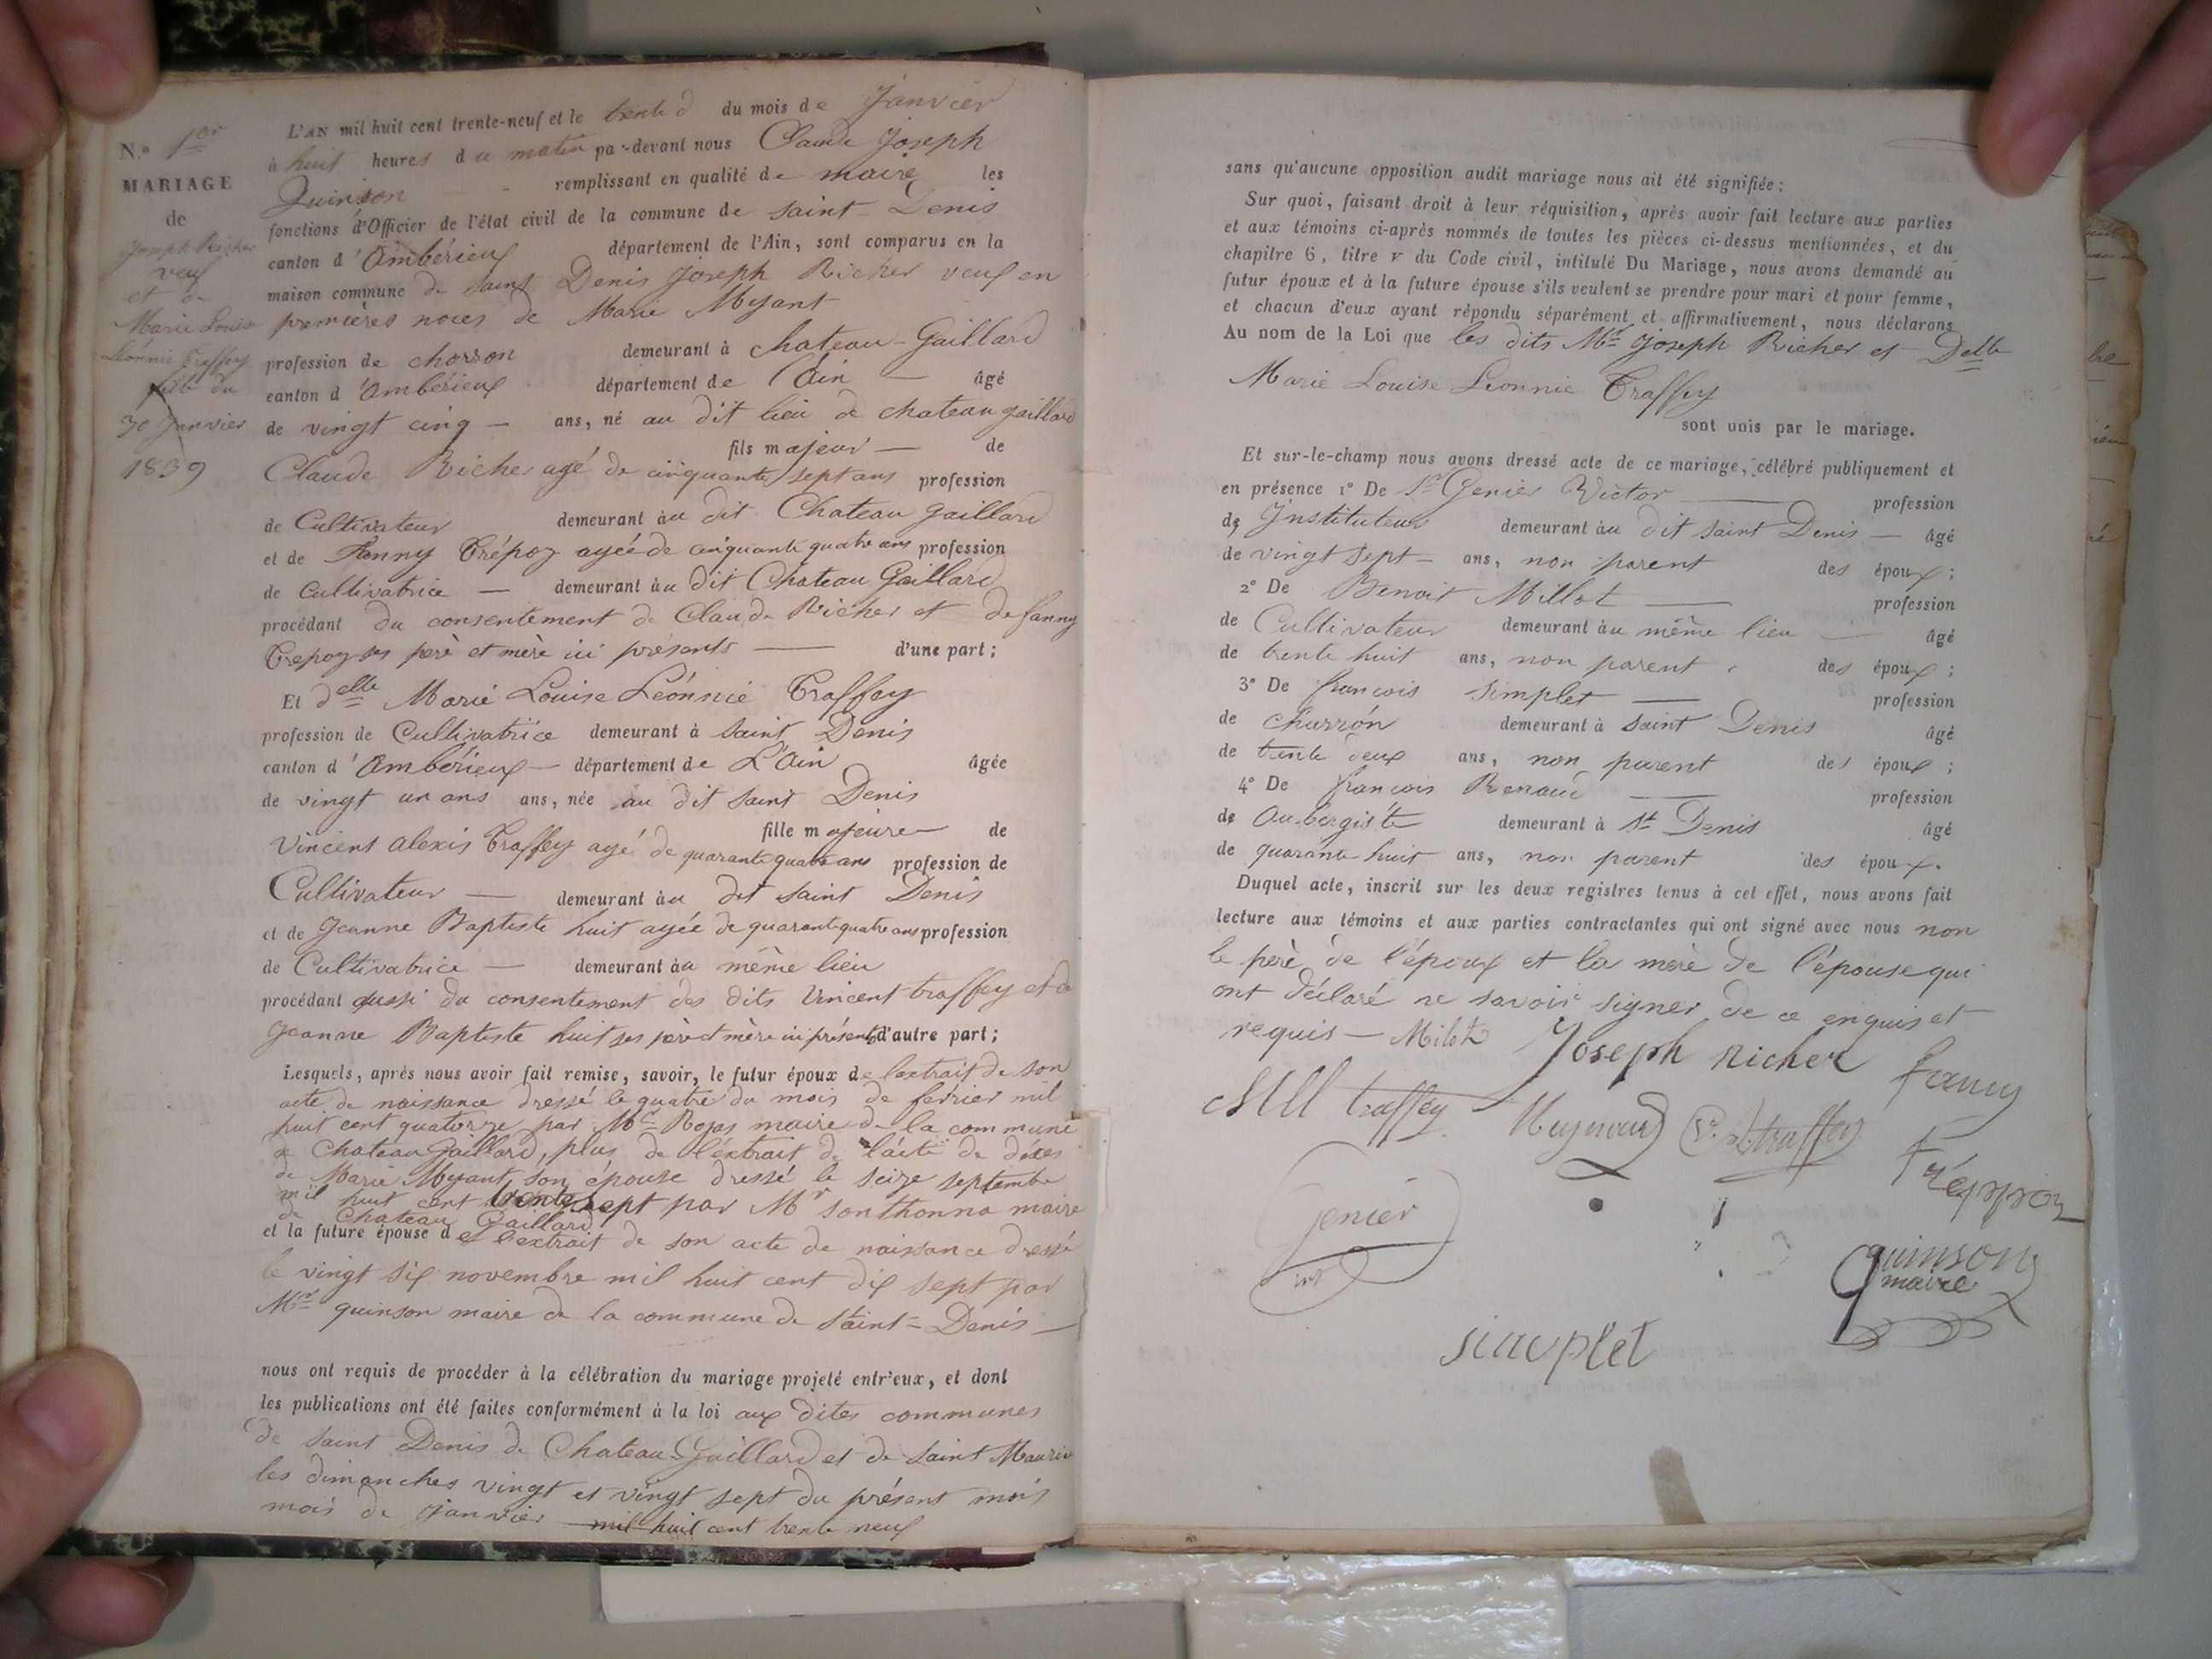 N.º 1er
MARIAGE
de
Joseph Richer
veuf
et de
Marie Louise
Léonnie Traffey
fille du
30 Janvier
1839
L'AN mil huit cent trente-neuf et le trente du mois de Janvier
à huit heures du matin par-devant nous Claude Joseph
Quinson remplissant en qualité de maire les
fonctions d'Officier de l'état civil de la commune de saint Denis
canton d'Ambérieux département de l'Ain, sont comparus en la
maison commune de saint Denis Joseph Richer veuf en
premières noces de Marie Myant
profession de charron demeurant à chateau-Gaillard
canton d'Ambérieux département de l'Ain — âgé
de vingt cinq — ans, né au dit lieu de chateau gaillard
fils majeur — de
Claude Richer agé de cinquante sept ans profession
de Cultivateur demeurant au dit Chateau gaillard
et de Fanny Trépoz agée de cinquante quatre ans profession
de Cultivatrice — demeurant au dit Chateau Gaillard
procédant du consentement de Claude Richer et de fanny
Trepoz ses père et mère ici présents — d'une part;
Et delle Marie Louise Léonnie Traffey
profession de Cultivatrice demeurant à saint Denis
canton d'Ambérieux — département de L'Ain âgée
de vingt un ans ans, née au dit saint Denis
fille majeure — de
Vincent alexis Traffey agé de quarante quatre ans profession de
Cultivateur — demeurant au dit saint Denis
et de Jeanne Baptiste huit agée de quarante quatre ans profession
de Cultivatrice — demeurant au même lieu
procédant aussi du consentement des dits Vincent traffey et de
Jeanne Baptiste huit ses père et mère ici présents d'autre part;
Lesquels, après nous avoir fait remise, savoir, le futur époux de l'extrait de son
acte de naissance dressé le quatre du mois de ferrier mil
huit cent quatorze par Mr Rojas maire de la commune
de Chateau Gaillard, plus de l'extrait de l'acte de décès
de Marie Myant son épouse dressé le seize septembre
mil huit cent trente sept par Mr sonthonna maire
de Chateau Gaillard
et la future épouse de l'extrait de son acte de naissance dressé
le vingt six novembre mil huit cent dix sept par
Mr quinson maire de la commune de saint-Denis —
nous ont requis de procéder à la célébration du mariage projeté entr'eux, et dont
les publications ont été faites conformément à la loi aux dites communes
de saint Denis de Chateau-Gaillard et de saint Maurice
les dimanches vingt et vingt sept du présent mois
mois de janvier mil huit cent trente neuf
sans qu'aucune opposition audit mariage nous ait été signifiée:
Sur quoi, faisant droit à leur réquisition, après avoir fait lecture aux parties
et aux témoins ci-après nommés de toutes les pièces ci-dessus mentionnées, et du
chapitre 6, titre v du Code civil, intitulé Du Mariage, nous avons demandé au
futur époux et à la future épouse s'ils veulent se prendre pour mari et pour femme,
et chacun d'eux ayant répondu séparément et affirmativement, nous déclarons
Au nom de la Loi que les dits Mr Joseph Richer et Delle
Marie Louise Leonnie Traffey
sont unis par le mariage.
Et sur-le-champ nous avons dressé acte de ce mariage, célébré publiquement et
en présence 1º De Sr Genier Victor — profession
de Instituteur demeurant au dit saint Denis — âgé
de vingt sept — ans, non parent des époux;
2º De Benoit Millot — profession
de Cultivateur demeurant au même lieu — âgé
de trente huit ans, non parent des époux;
3º De francois simplet — profession
de charrón demeurant à saint Denis âgé
de trente deux ans, non parent des époux;
4º De francois Renaud — profession
de Aubergiste demeurant à St Denis âgé
de quarante huit ans, non parent des époux.
Duquel acte, inscrit sur les deux registres tenus à cet effet, nous avons fait
lecture aux témoins et aux parties contractantes qui ont signé avec nous non
le père de l'époux et la mère de l'épouse qui
ont déclaré ne savoir signer de ce enquis et
requis — Milot Joseph richer fanny
traffey traffey
Trépoz
Genier
quinson
maire
simplet